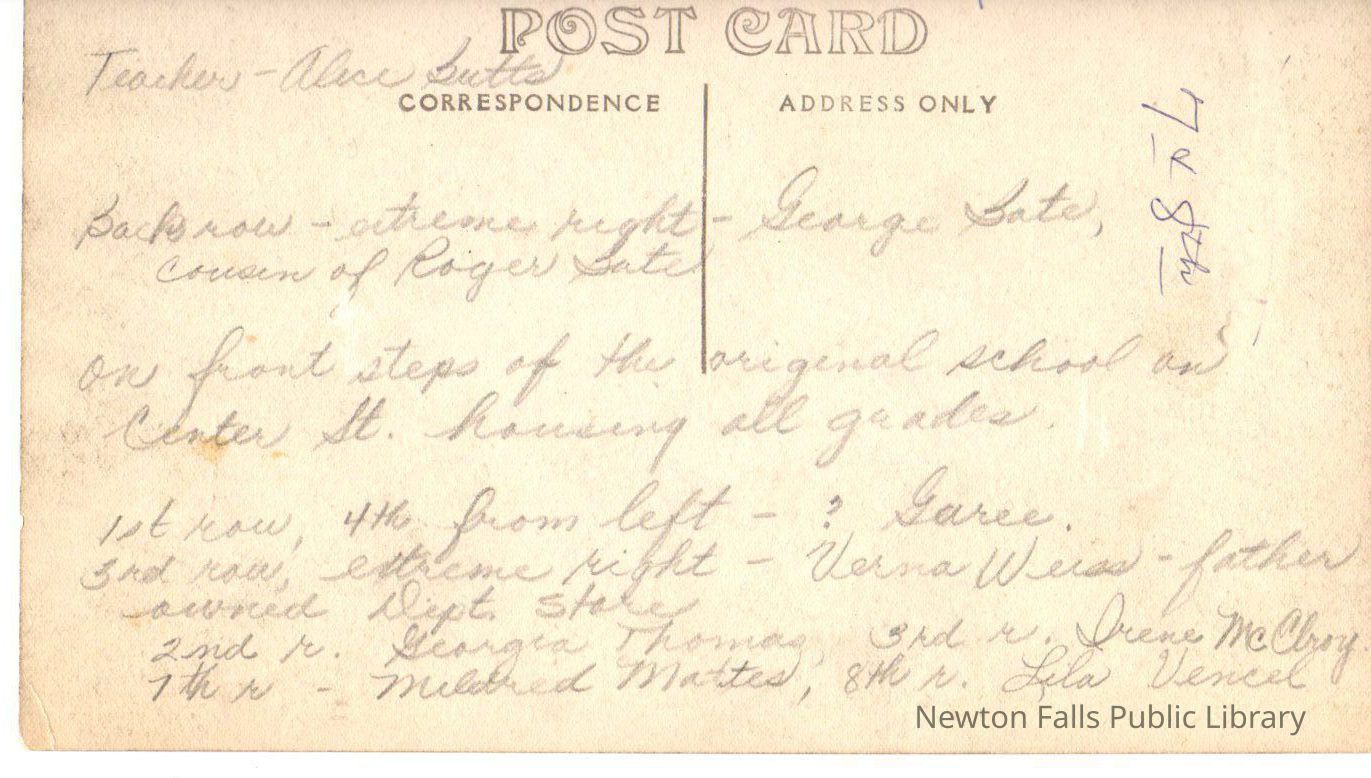 POST CARD
Teacher - Alice Butts
CORRESPONDENCE ADDRESS ONLY
7 & 8th
Back row - extreme right - George Bate,
cousin of Roger Bate
on front steps of the original school on
Center St. housing all grades.
1st row, 4th from left - ? Garee.
3rd row, extreme right - Verna Weiss - father
owned Dept. Store
2nd r. Georgia Thomas, 3rd r. Irene McClroy.
7th r - Mildred Mattes, 8th r. Lila Vencel
Newton Falls Public Library